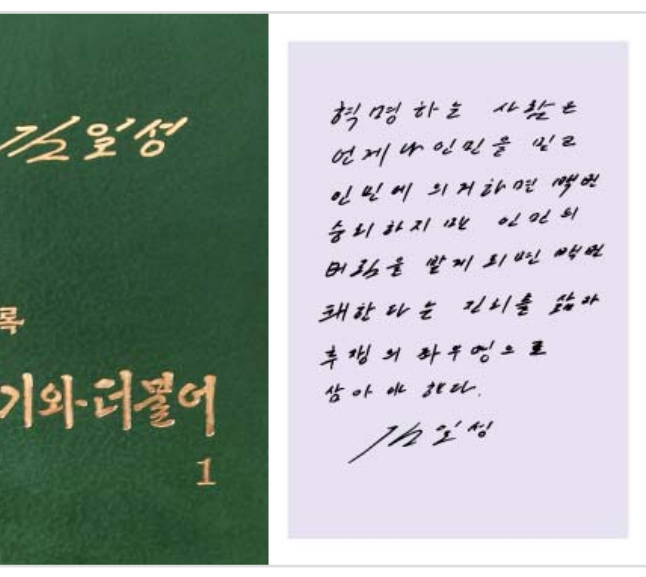 김일성
록
기와 더불어
1
혁명하는 사람은
언제나 인민을 믿고
인민에 의거하면 백번
승리하지만 인민의
버림을 받게 되면 백번
패한다는 진리를 삶과
투쟁의 좌우명으로
삼아야 한다.
김일성